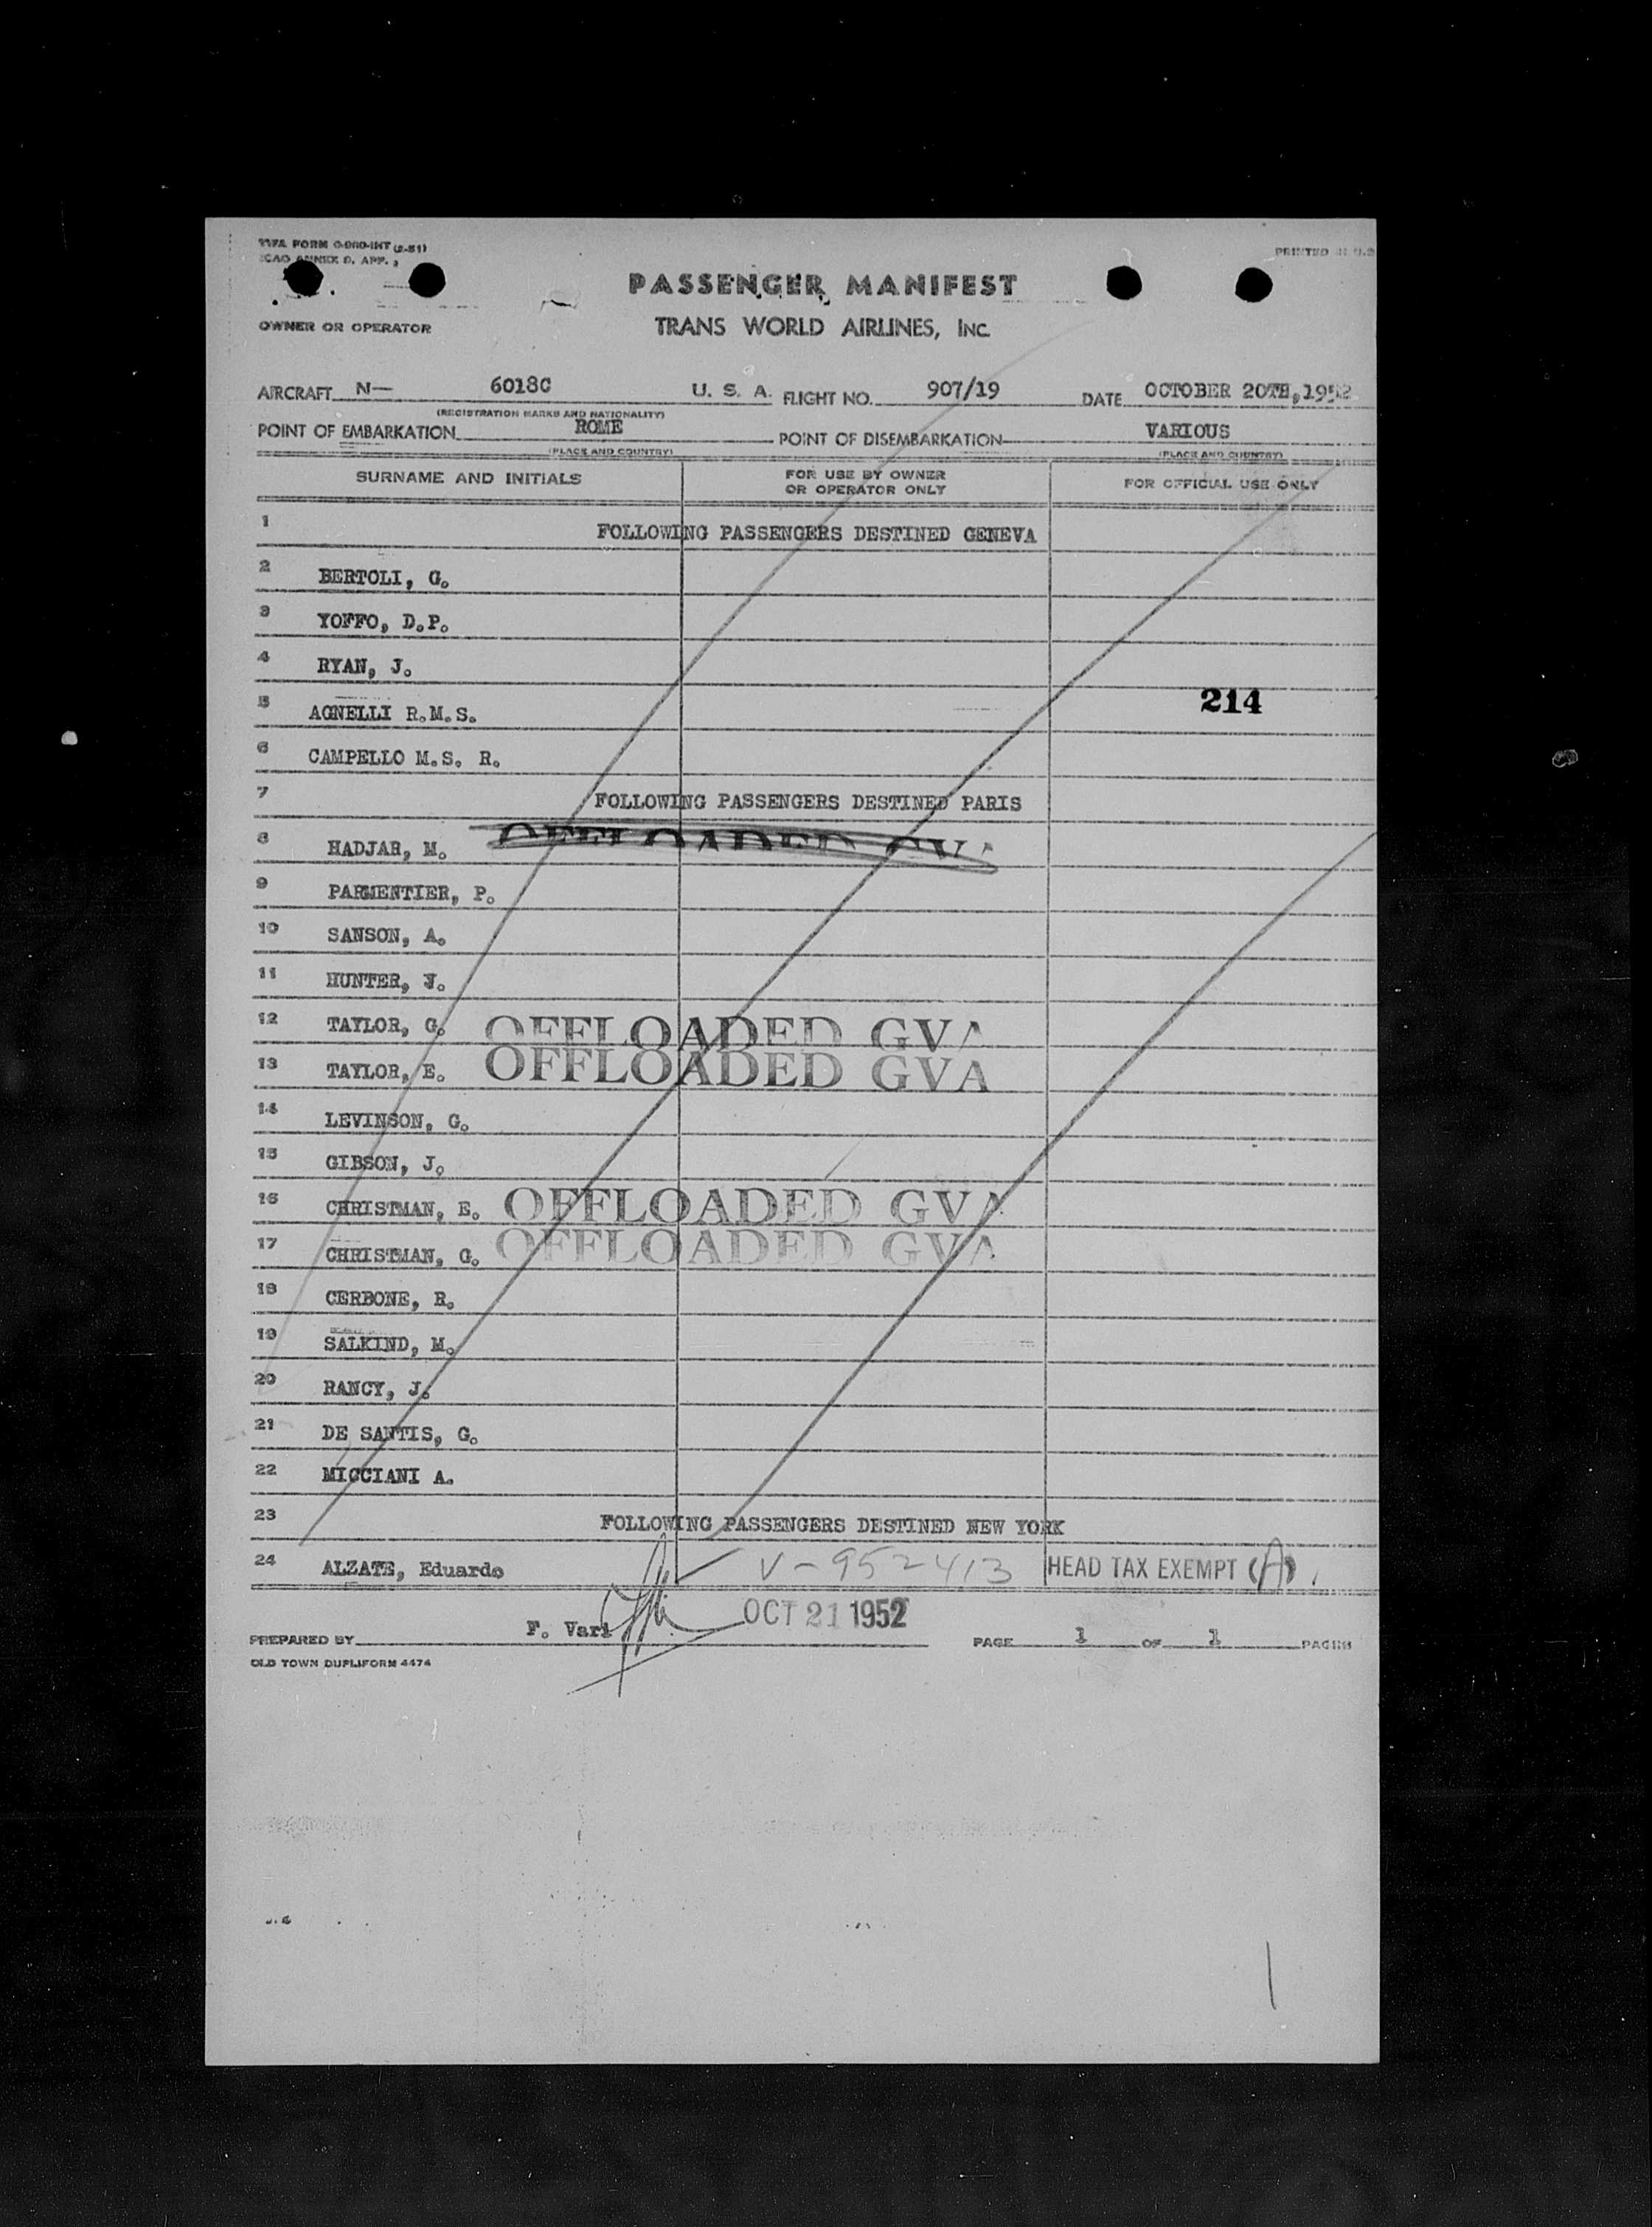 TWA FORM O-900-INT (2-51)
ICAO ANNEX 9. APP. 3
PRINTED IN U.S
PASSENGER MANIFEST
OWNER OR OPERATOR TRANS WORLD AIRLINES, INC.
AIRCRAFT N— 6018C U. S. A. FLIGHT NO. 907/19 DATE OCTOBER 20TH,1952
(REGISTRATION MARKS AND NATIONALITY)
POINT OF EMBARKATION ROME POINT OF DISEMBARKATION VARIOUS
(PLACE AND COUNTRY) (PLACE AND COUNTRY)
SURNAME AND INITIALS FOR USE BY OWNER OR OPERATOR ONLY FOR OFFICIAL USE ONLY
1 FOLLOWING PASSENGERS DESTINED GENEVA
2 BERTOLI, G.
3 YOFFO, D.P.
4 RYAN, J.
5 AGNELLI R.M.S. 214
6 CAMPELLO M.S. R.
7 FOLLOWING PASSENGERS DESTINED PARIS
8 HADJAR, M. OFFLOADED GVA
9 PARMENTIER, P.
10 SANSON, A.
11 HUNTER, J.
12 TAYLOR, G. OFFLOADED GVA
13 TAYLOR, E. OFFLOADED GVA
14 LEVINSON, G.
15 GIBSON, J.
16 CHRISTMAN, E. OFFLOADED GVA
17 CHRISTMAN, G. OFFLOADED GVA
18 CERBONE, R.
19 SALKIND, M.
20 RANCY, J.
21 DE SANTIS, G.
22 MICCIANI A.
23 FOLLOWING PASSENGERS DESTINED NEW YORK
24 ALZATE, Eduardo V-952413 HEAD TAX EXEMPT (A)
OCT 21 1952
PREPARED BY F. Vari PAGE 1 OF 1 PAGES
OLD TOWN DUPLIFORM 4474